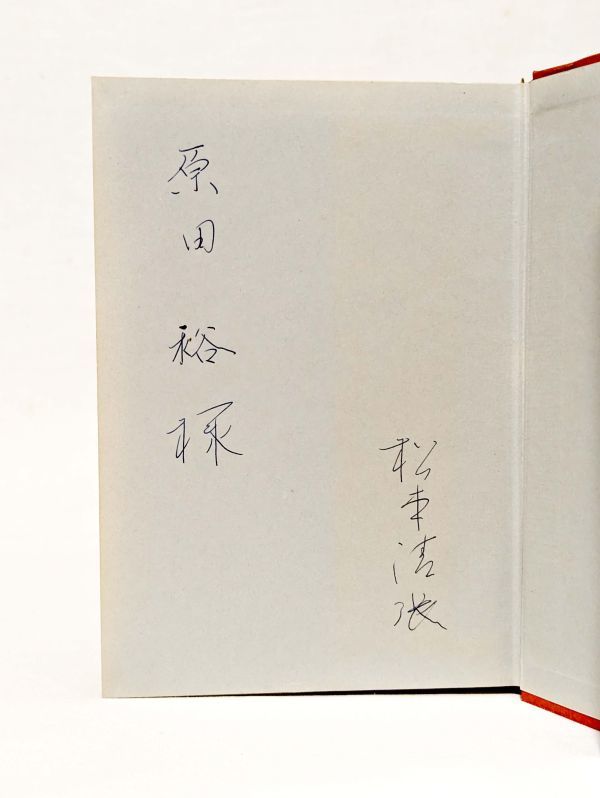 原田裕様
松本清張